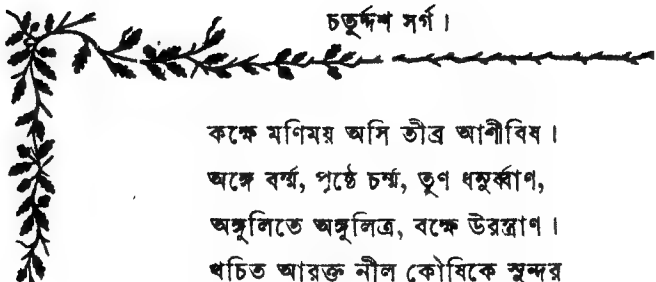 চতুর্দ্দশ সর্গ।
কক্ষে মণিময় অসি তীব্র আশীবিষ।
অঙ্গে বর্ম্ম, পৃষ্ঠে চর্ম্ম, তুণ ধনুর্ব্বাণ,
অঙ্গুলিতে অঙ্গুলিত্র, বক্ষে উরস্ত্রাণ।
খচিত আরক্ত নীল কৌষিকে সুন্দর